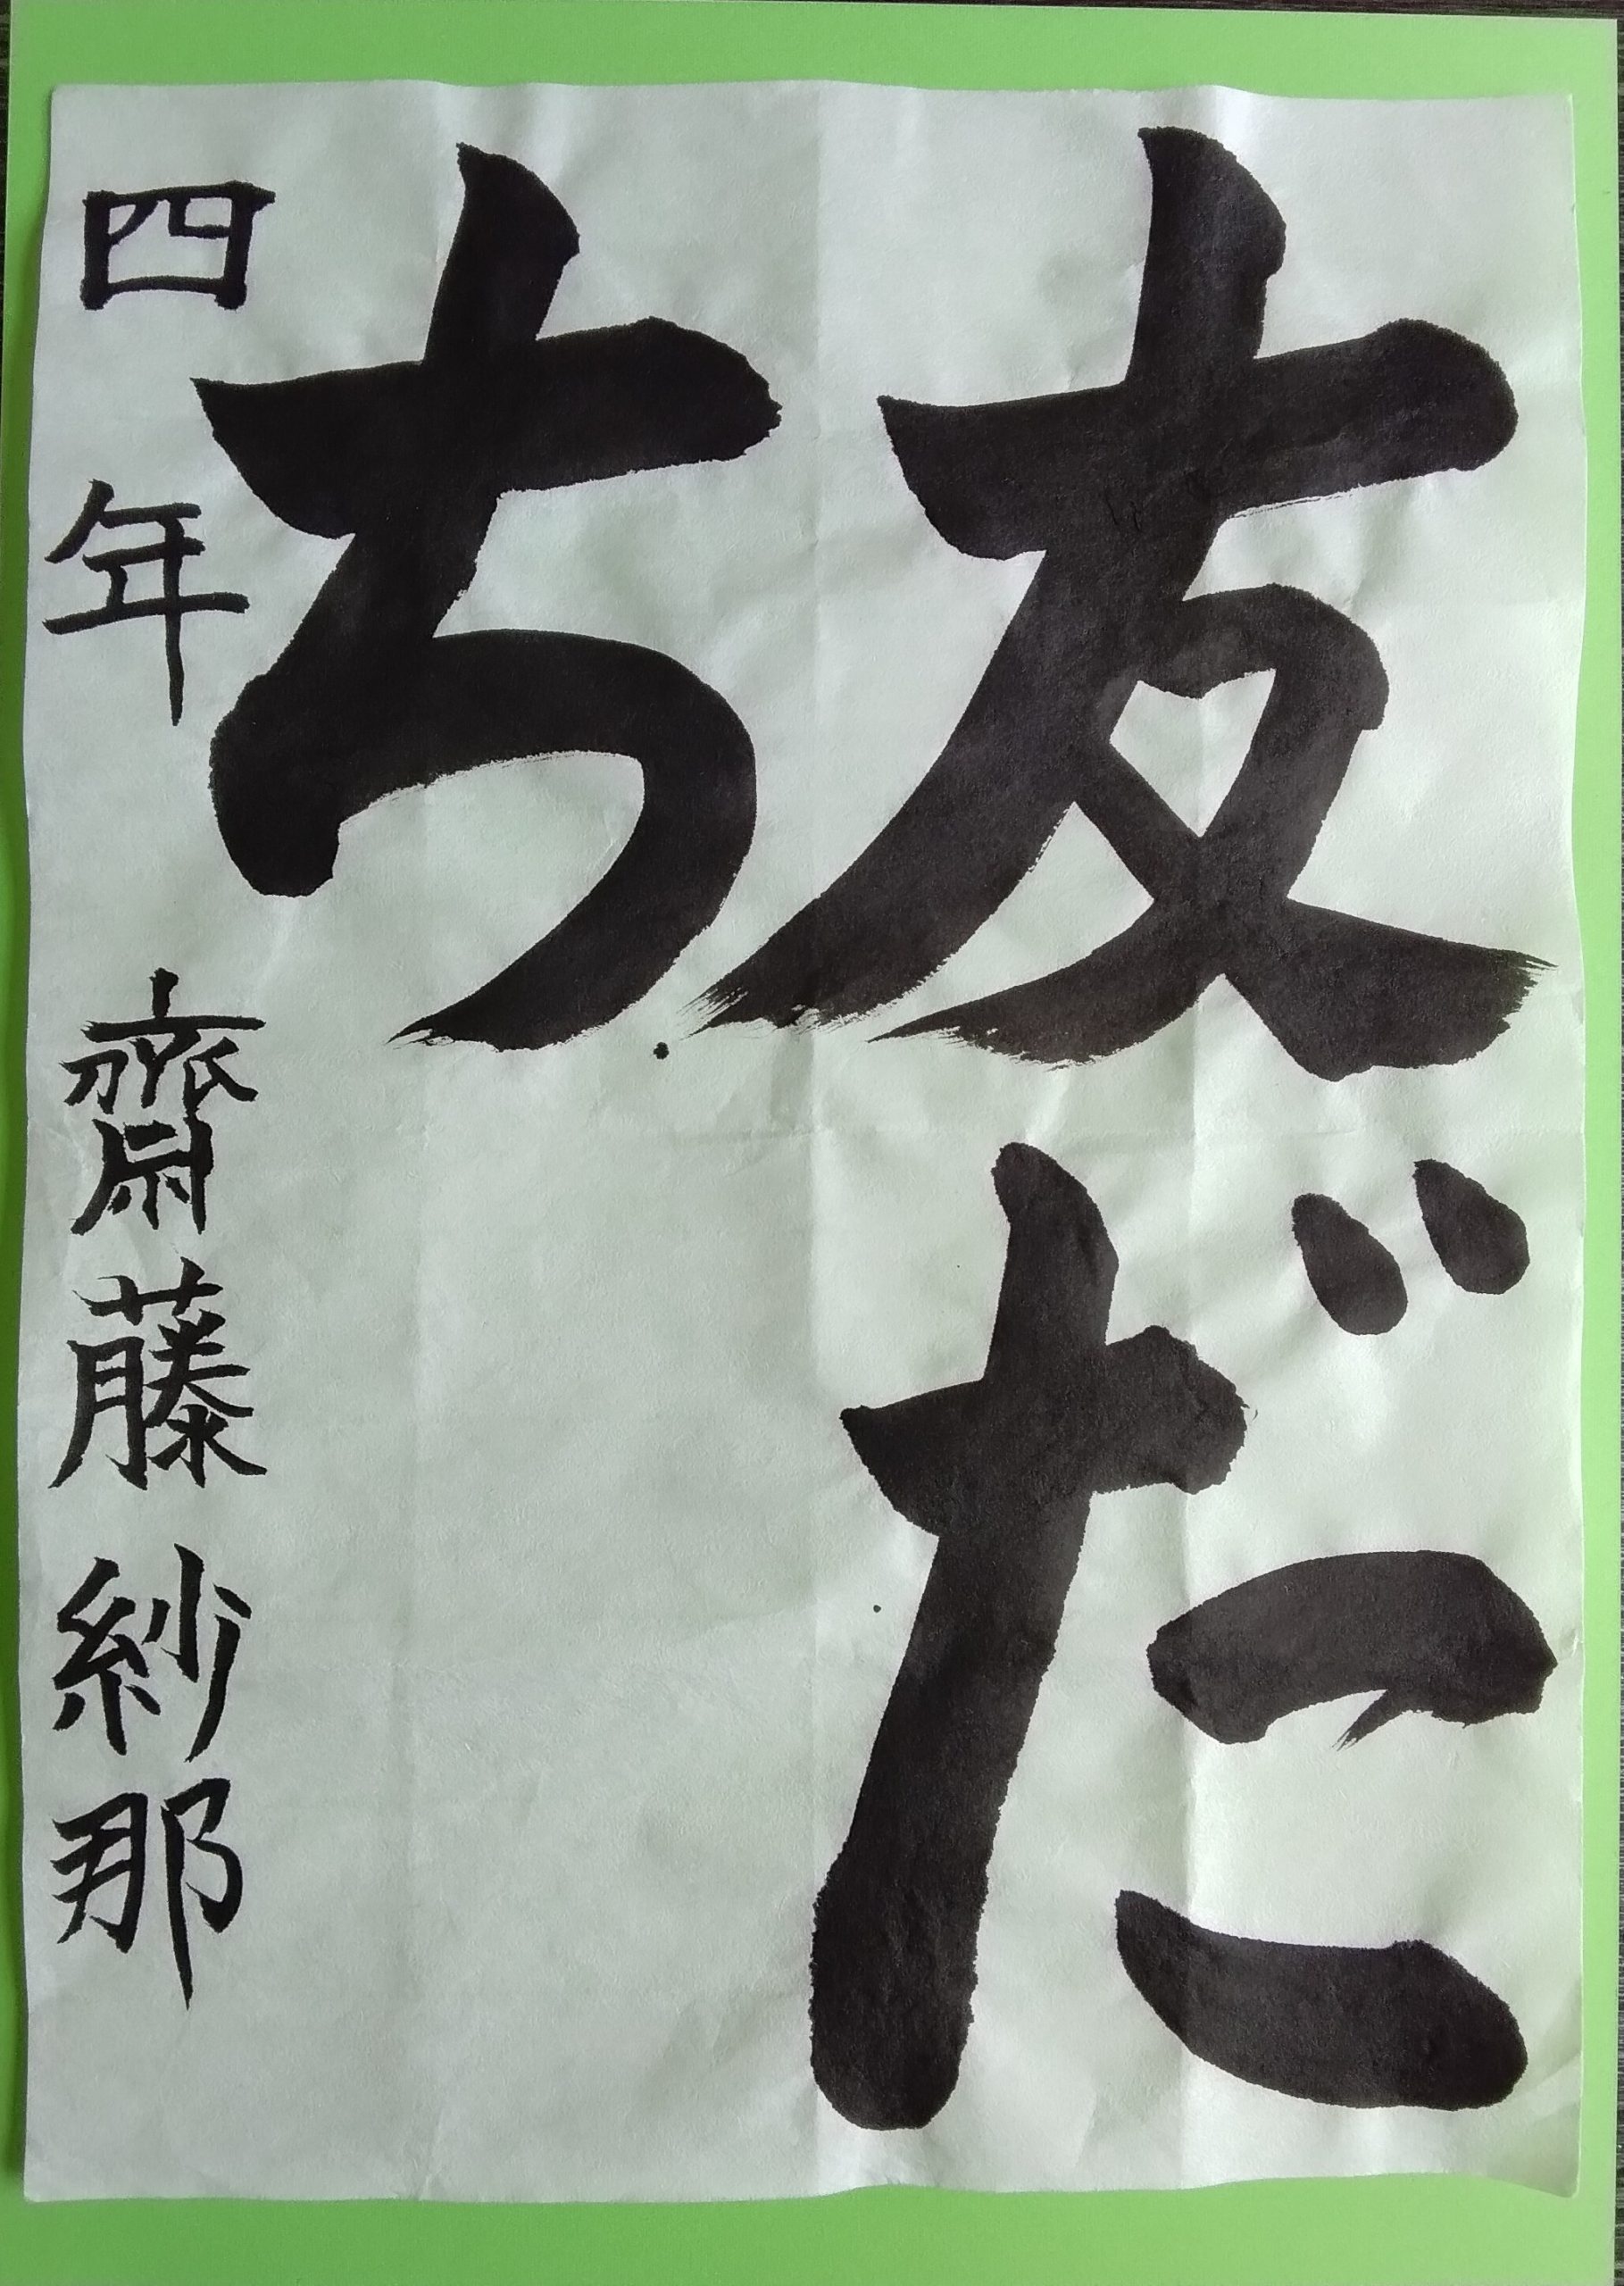 友だ
ち
四年 齋藤紗那